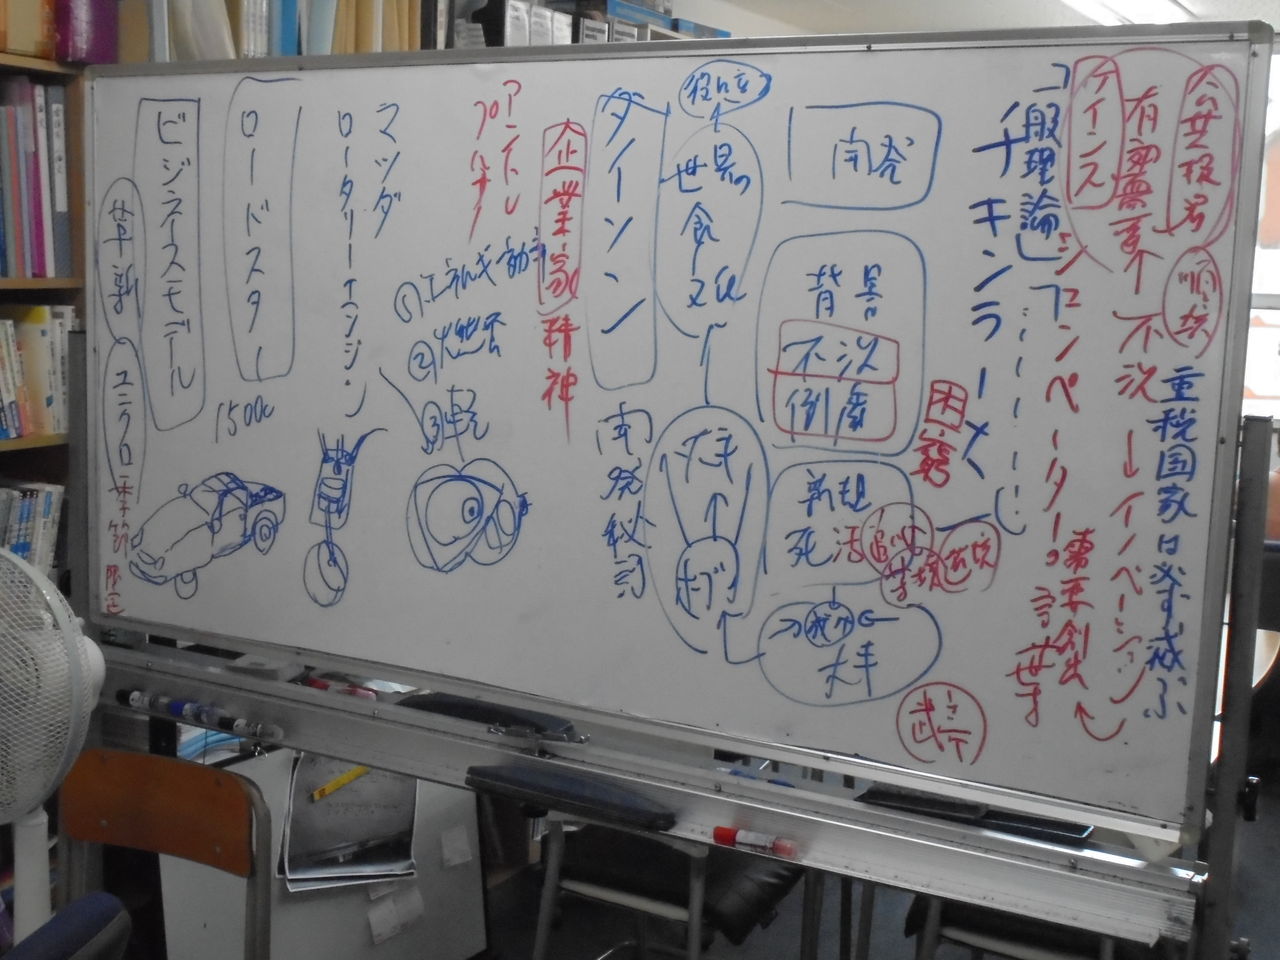 公共投資
順境
有効需要↑
不況→イノベーション
重税国家は必ず滅ぶ
ケインズ
『一般理論』
シュンペーター
需要創出
チキンラーメン
困窮
逆境
開発
背景
不況
倒産
新規
死活
追い
大手
世界の
食
文化
役に立
大手
ダイソン
開発秘話
企業家精神
アントレ
プレナー
①エネルギー効率
②燃費
③軽
マツダ
ロータリーエンジン
ロードスター
1500cc
ビジネスモデル
革新
ユニクロ
季節
限定